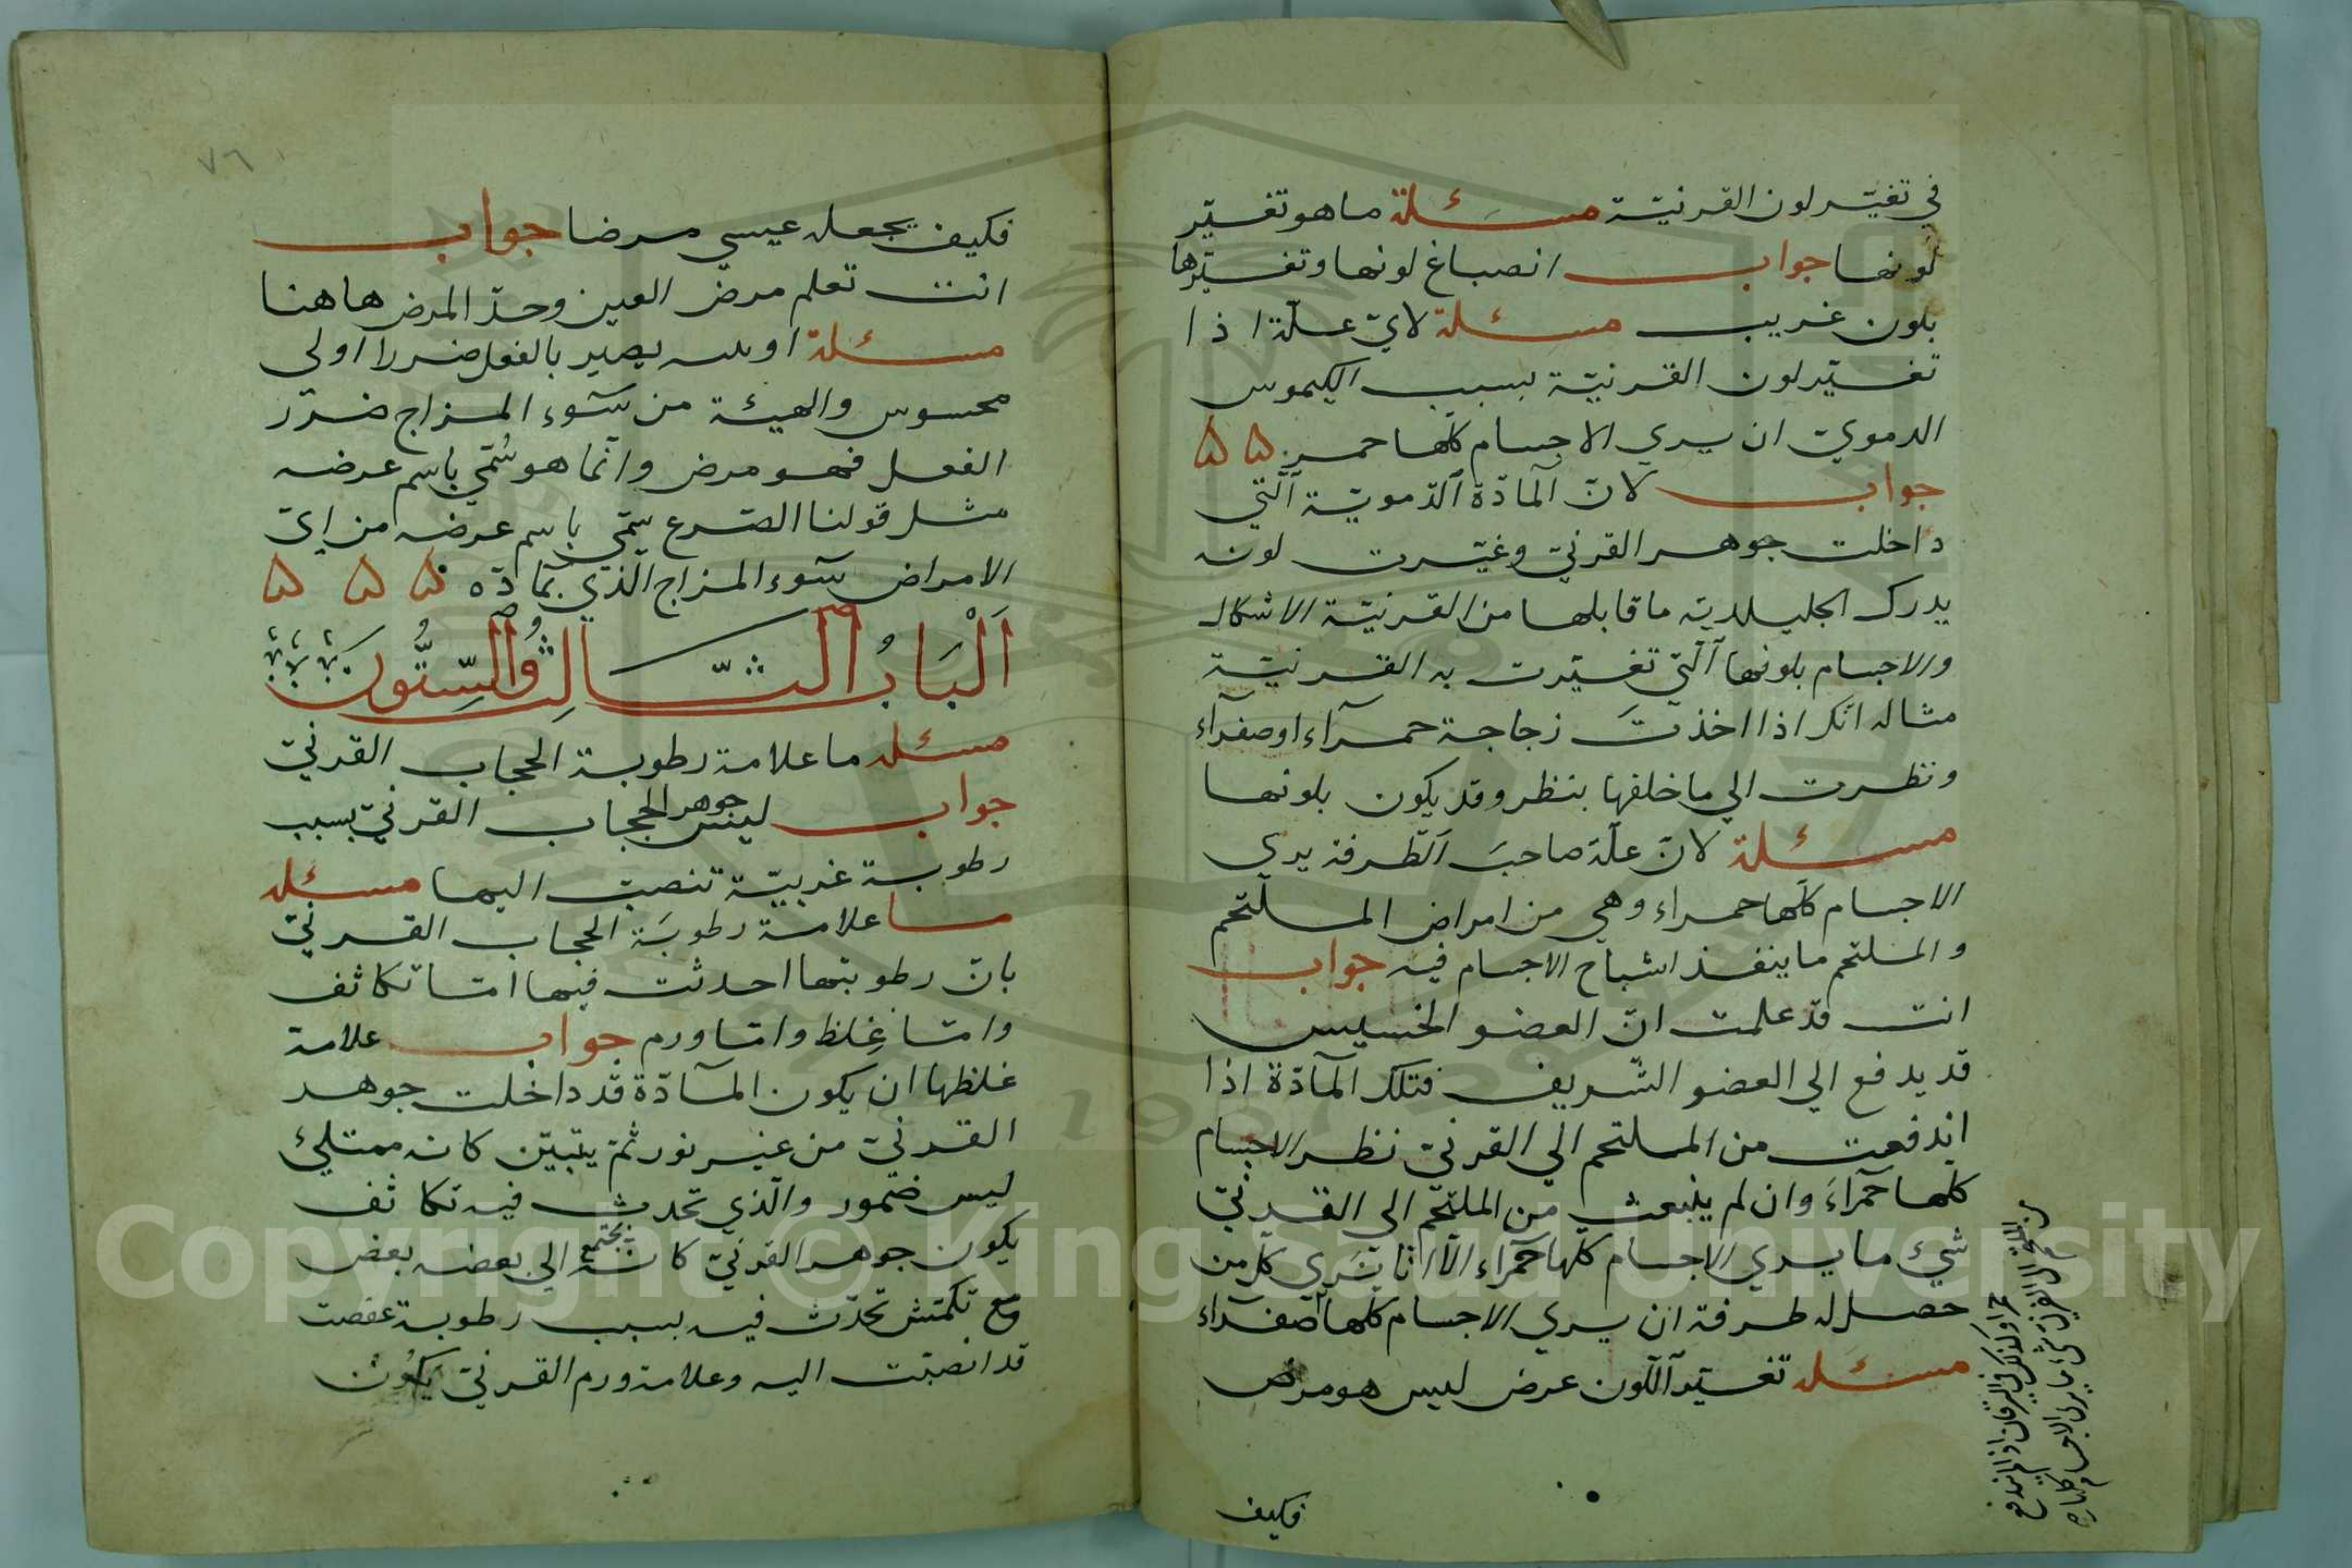 في تغيّر لون القرنيّة مسئلة ما هو تغيّر
لونها جواب انصباغ لونها وتغيّرها
بلون غريب مسئلة لايّ علّة اذا
تغيّر لون القرنيّة بسبب الكيموس
الدموي ان يري الاجسام كلّها حمر ۵ ۵
جواب لانّ المادّة الدّمويّة الّتي
داخلت جوهر القرنيّ وغيّرت لونه
يدرك الجليلديه ما قابلها من القرنيّة الاشكال
والاجسام بلونها الّتي تغيّرت به القرنيّة
مثاله انّك اذا اخذتَ زجاجة حمرآء او صفرآء
ونظرت الي ما خلفها بنظر وقد يكون بلونها
مسئلة لانّ علّة صاحبَ الطّرفة يري
الاجسام كلّها حمراء وهي من امراض الملتحم
والملتحم ما ينفذ اشباح الاجسام فيه جواب
انت قد علمت انّ العضو الخسيس
قد يدفع الي العضو الشّريف فتلك المآدّة اذا
اندفعت من الملتحم الي القرنيّ نظر الاجسام
كلّها حمرآءَ وان لم ينبعث من الملتحم الي القرنيّ
شيئ ما يري الاجسام كلّها حمرآء الّا انّا نري كلّ من
حصل له طرفة ان يري الاجسام كلّها صفرآء
مسئله تغيّر اللّون عرض ليس هو مرض
فكيف
من الملتحم الي القرني شئ ما يري الاجسام كلها
حمراء وكذلك في اليرقان اذا لم يندفع
٧٦
فكيف يجعله عيسي مرضا جواب
انت تعلم مرض العين وحدّ المرض هاهنا
مسئلة يصير بالفعل ضررا اولي
محسوس والهيئة من سوء المزاج ضرّر
الفعل فهو مرض وانّما هو سُمّي باسم عرضه
مثل قولنا الصّرع سمّي باسم عرضه من ايّ
الامراض سوء المزاج الّذي بمادّه ۵ ۵ ۵
اَلْبَابُ الثَّالِثُ والسِّتُّون
مسئله ما علامة رطوبة الحجاب القرنيّ
جواب لينس جوهر الحجاب القرنيّ بسبب
رطوبة غريبيّة تنصبّ اليها مسئله
ما علامة رطوبَة الحجاب القرنيّ
بانّ رطوبتها احدثت فيها امّا تكاثف
وامّا غِلظ وامّا ورم جواب علامة
غلظها ان يكون المآدّة قد داخلت جوهر
القرنيّ من غير نور ثمّ يتبيّن كانه ممتلئ
ليس ضمور والّذي تحدث فيه تكاثف
يكون جوهر القرنيّ كانه يجتمع الي بعضه بعض
مع تكمّش تحدّث فيه بسبب رطوبة عفصت
قد انصبّت اليه وعلامة ورم القرنيّ يكون
Copyright © King Saud University
1957